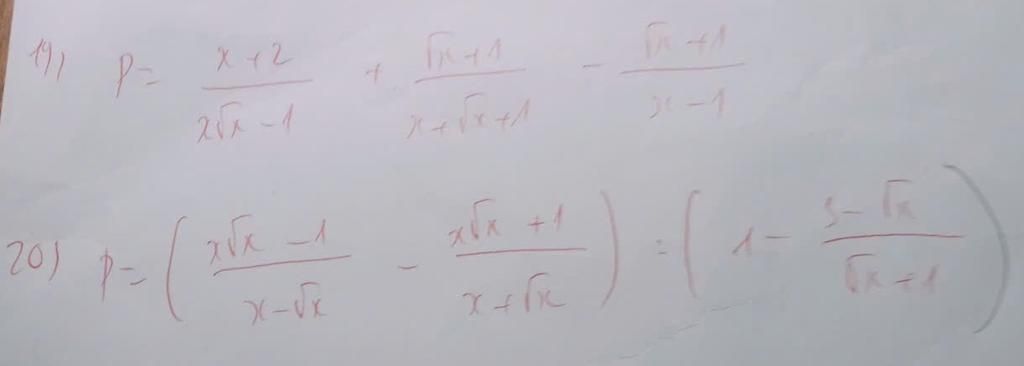 19) P = \frac{x+2}{x\sqrt{x}-1} + \frac{\sqrt{x}+1}{x+\sqrt{x}+1} - \frac{\sqrt{x}+1}{x-1}
20) P = \left( \frac{x\sqrt{x}-1}{x-\sqrt{x}} - \frac{x\sqrt{x}+1}{x+\sqrt{x}} \right) : \left( 1 - \frac{3-\sqrt{x}}{\sqrt{x}+1} \right)